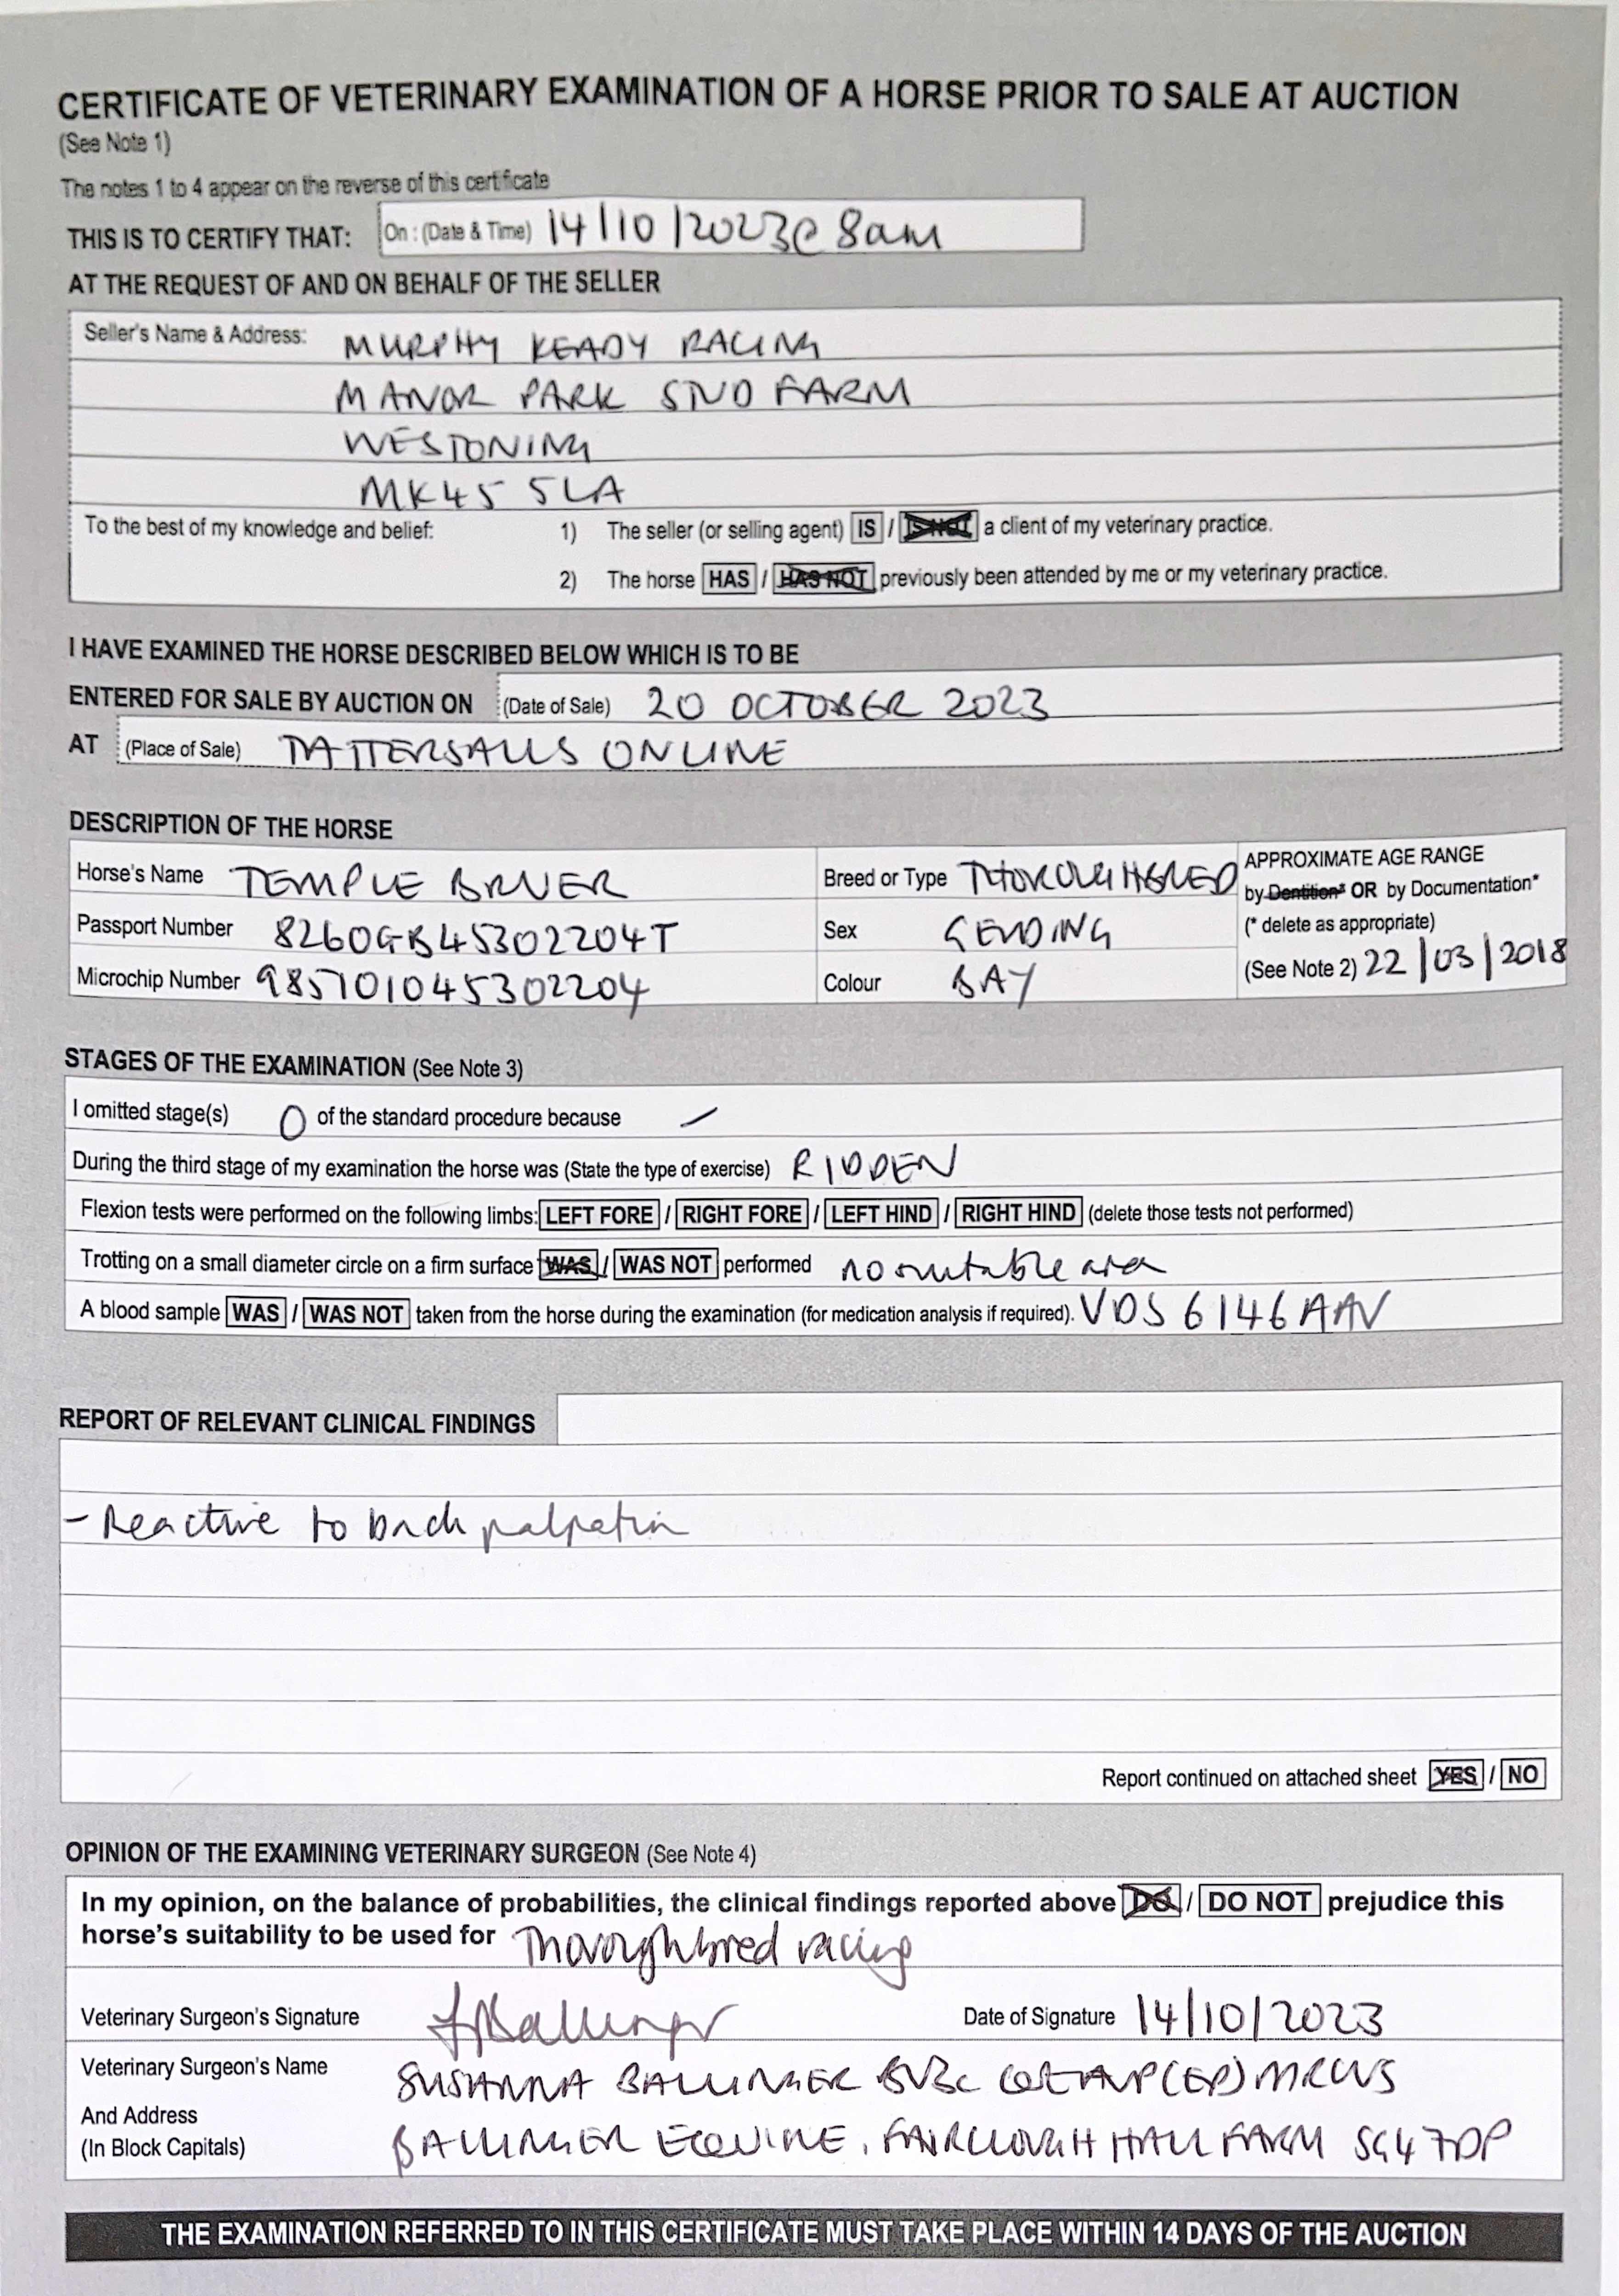 CERTIFICATE OF VETERINARY EXAMINATION OF A HORSE PRIOR TO SALE AT AUCTION
(See Note 1)
The notes 1 to 4 appear on the reverse of this certificate
THIS IS TO CERTIFY THAT: On : (Date & Time) 14/10/2023 @ 8am
AT THE REQUEST OF AND ON BEHALF OF THE SELLER
Seller's Name & Address: MURPHY KEADY RACING
MANOR PARK STUD FARM
WESTONING
MK45 5LA
To the best of my knowledge and belief: 1) The seller (or selling agent) IS / IS NOT a client of my veterinary practice.
2) The horse HAS / HAS NOT previously been attended by me or my veterinary practice.
I HAVE EXAMINED THE HORSE DESCRIBED BELOW WHICH IS TO BE
ENTERED FOR SALE BY AUCTION ON (Date of Sale) 20 OCTOBER 2023
AT (Place of Sale) TATTERSALLS ONLINE
DESCRIPTION OF THE HORSE
Horse's Name TEMPLE BRUER
Passport Number 8260GB45302204T
Microchip Number 985101045302204
Breed or Type THOROUGHBRED
Sex GELDING
Colour BAY
APPROXIMATE AGE RANGE
by Dentition* OR by Documentation*
(* delete as appropriate)
(See Note 2) 22/03/2018
STAGES OF THE EXAMINATION (See Note 3)
I omitted stage(s) 0 of the standard procedure because –
During the third stage of my examination the horse was (State the type of exercise) RIDDEN
Flexion tests were performed on the following limbs: LEFT FORE / RIGHT FORE / LEFT HIND / RIGHT HIND (delete those tests not performed)
Trotting on a small diameter circle on a firm surface WAS / WAS NOT performed no suitable area
A blood sample WAS / WAS NOT taken from the horse during the examination (for medication analysis if required). VDS 6146AAV
REPORT OF RELEVANT CLINICAL FINDINGS
- Reactive to back palpation
Report continued on attached sheet YES / NO
OPINION OF THE EXAMINING VETERINARY SURGEON (See Note 4)
In my opinion, on the balance of probabilities, the clinical findings reported above DO / DO NOT prejudice this
horse's suitability to be used for Thoroughbred racing
Veterinary Surgeon's Signature Ballinger Date of Signature 14/10/2023
Veterinary Surgeon's Name SUSANNA BALLINGER BVSc CertAVP(EP) MRCVS
And Address
(In Block Capitals) BALLINGER EQUINE, FAIRCLOUGH HALL FARM SG4 7DP
THE EXAMINATION REFERRED TO IN THIS CERTIFICATE MUST TAKE PLACE WITHIN 14 DAYS OF THE AUCTION